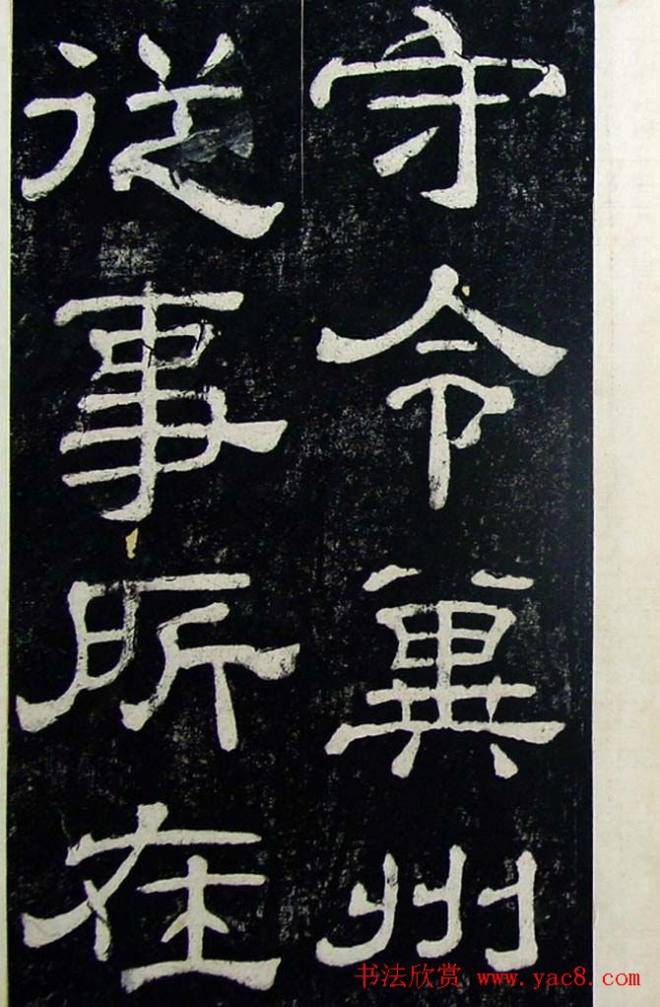 守令冀州
從事所在
书法欣赏 www.yac8.com